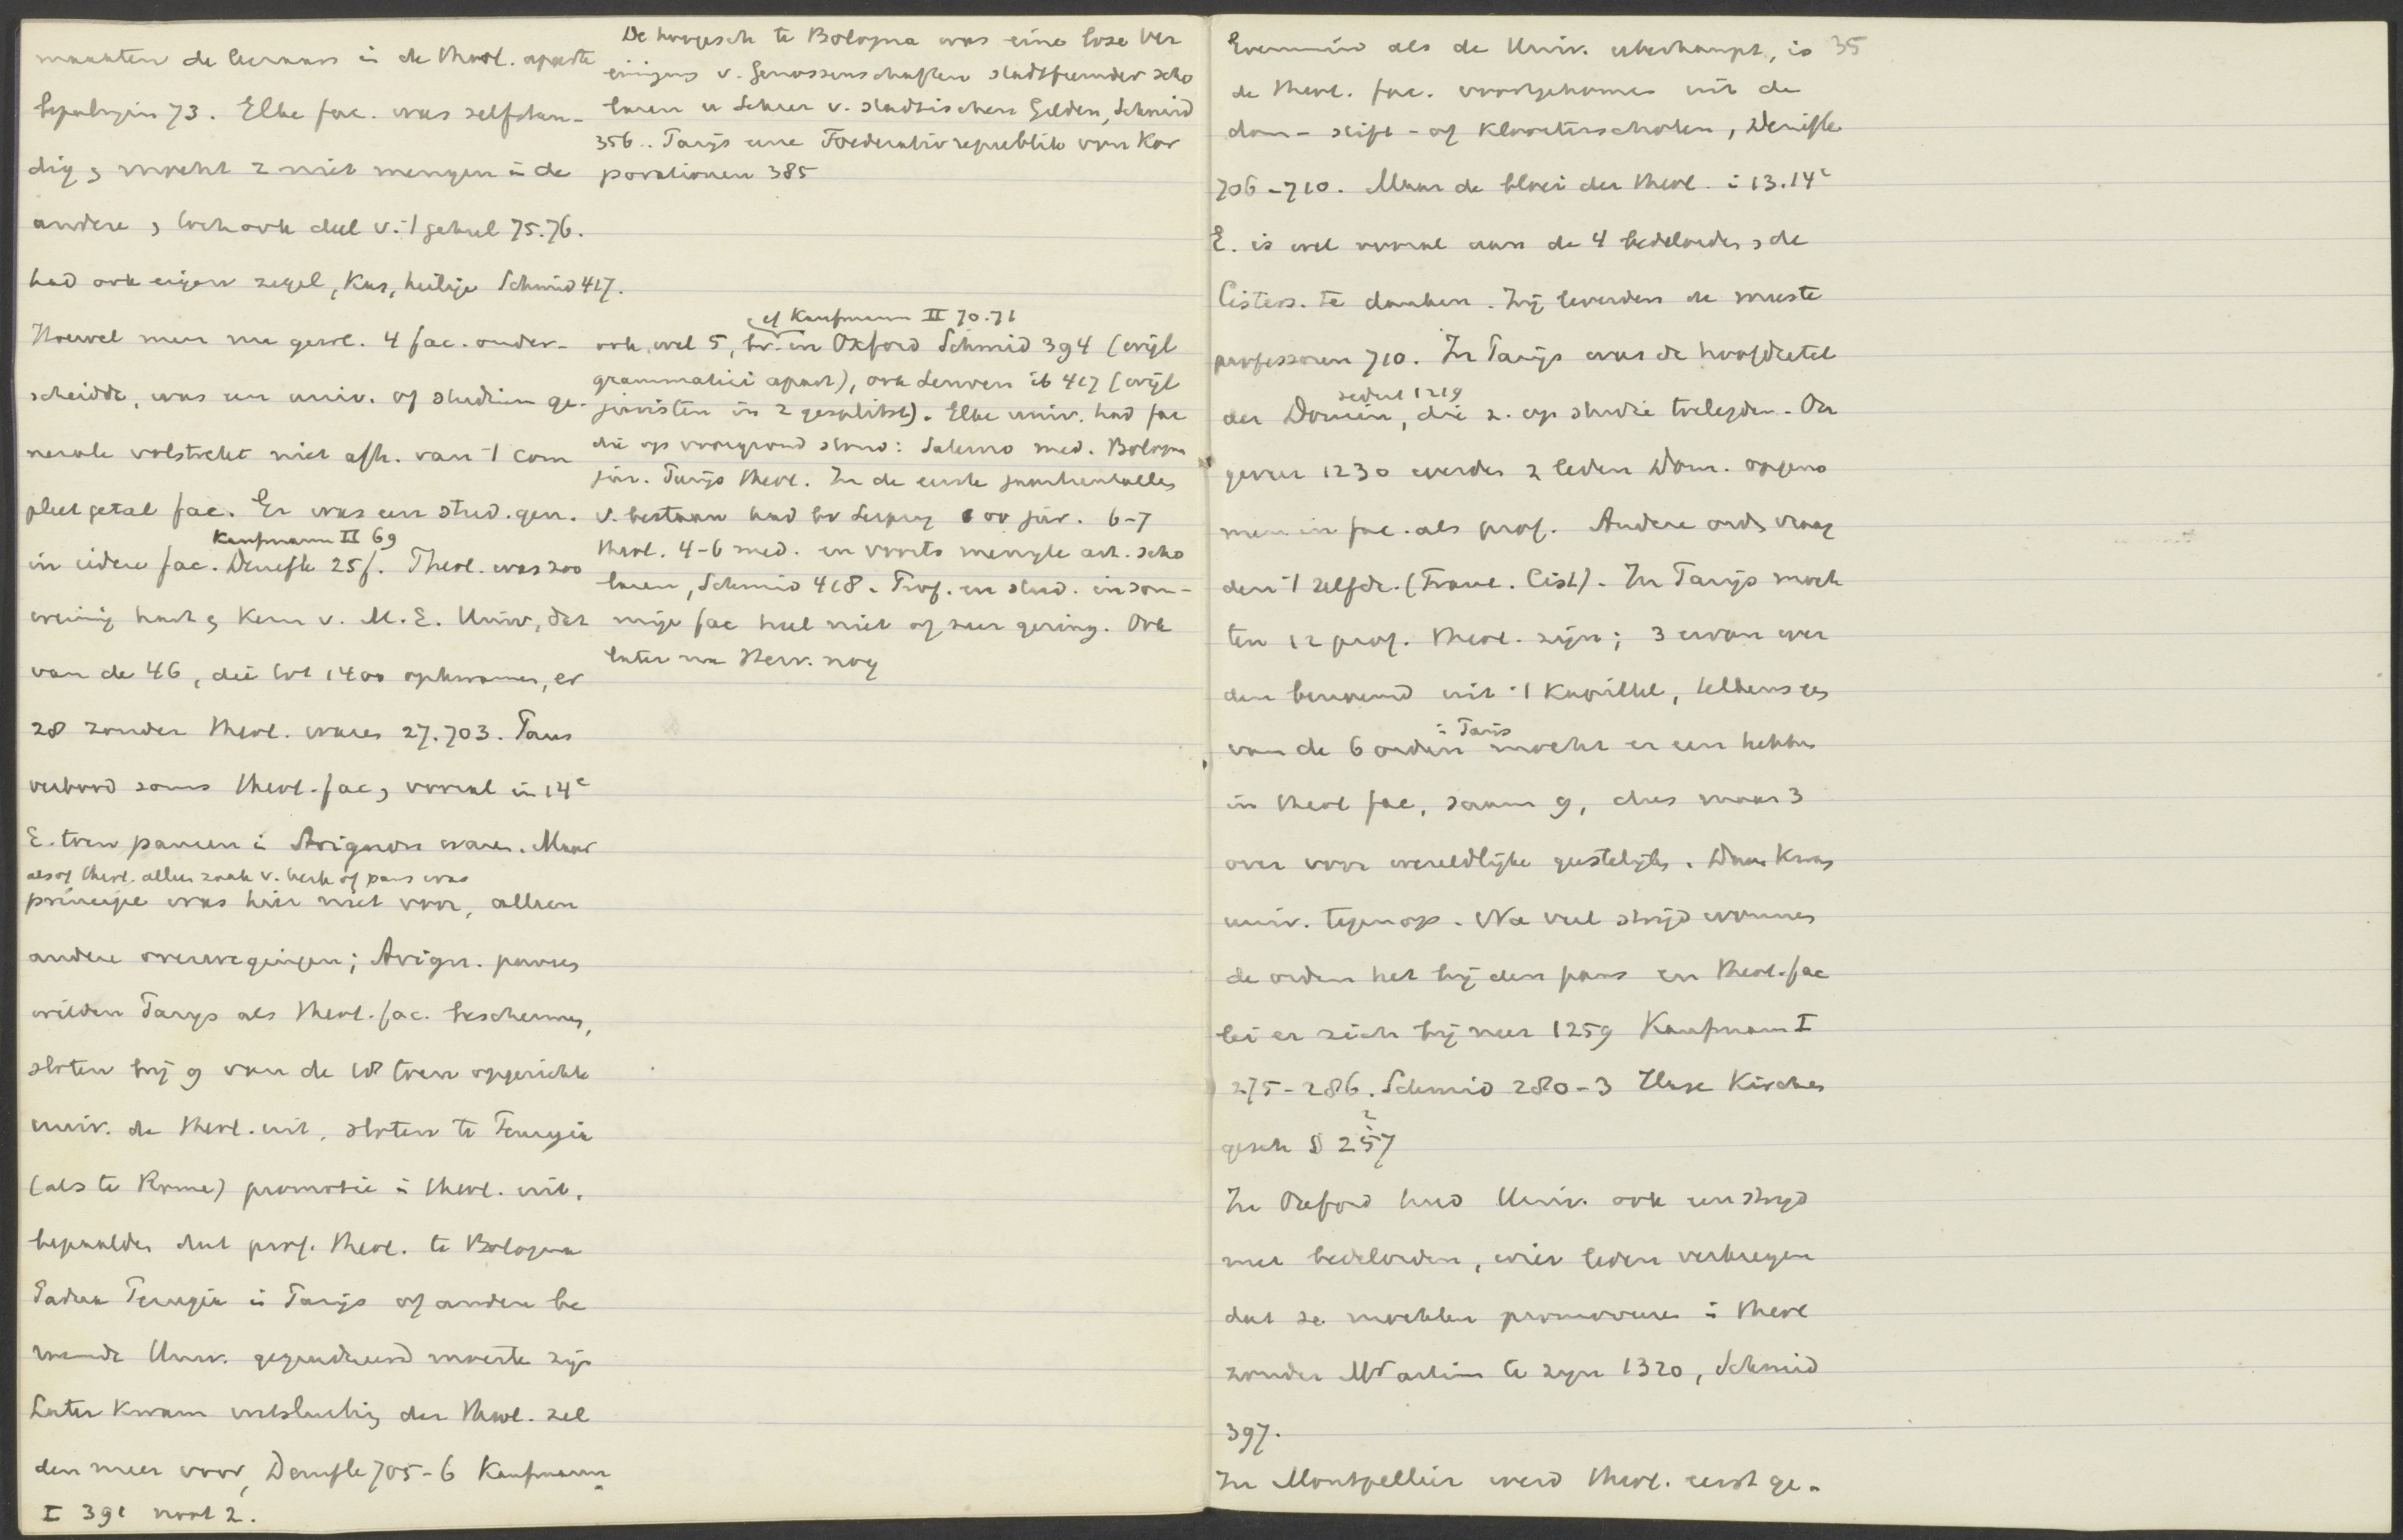 maakten de leeraars in de theol. aparte
bepalingen 73. Elke fac. was zelfstan-
dig, mocht z. niet mengen in de
andere, toch ook deel v. 't geheel 75.76.
had ook eigen zegel, kas, heilige Schmid 417.
Hoewel men nu gew. 4 fac. onder-
scheidde, was een univ. of studium ge-
nerale volstrekt niet afh. van 't com
pleet getal fac. Er was een stud. gen.
Kaufmann II 69
in iedere fac. Denifle 25f. Theol. was zoo
weinig hart, kern v. M.E. Univ, dat
van de 46, die tot 1400 opkwamen, er
28 zonder theol. waren 27.703. Paus
verbood soms theol. fac, vooral in 14e
E. toen pausen i Avignon waren. Maar
alsof theol. alleen zaak v. kerk of paus was
principe was hier niet voor, alleen
andere overwegingen; Avign. pausen
wilden Parijs als theol. fac. beschermen,
sloten bij 9 van de 18 toen opgerichte
univ. de theol. uit, sloten te Perugia
(als te Rome) promotie i theol. uit,
bepaalden dat prof. theol. te Bologna
Padua Perugia i Parijs of andere be
roemde Univ. gegradueerd moeste zijn
Later kwam uitsluiting der theol. zel
den meer voor, Denifle 705-6 Kaufmann
I 391 noot 2.
De hoogesch te Bologna was eine lose Ver
einigung v. Genossenschaften stadtfremder scho
laren u Lehrer v. stadtischen Gelden, Schmid
356.. Parijs eine Foederativrepublik von Kor
porationen 385
cf Kaufmann II 70.71
ook wel 5, bv. in Oxford Schmid 394 (wijl
grammatici apart), ook Leuven ib 417 (wijl
juristen in 2 gesplitst). Elke univ. had fac
die op voorgrond stond: Salerno med. Bologna
jur. Parijs theol. In de eerste jaarhentalles
v. bestaan had bv Leipzig oo jur. 6-7
theol. 4-6 med. en voorts menigte art. scho
laren, Schmid 418. Prof. en stud. in som-
mige fac heel niet of zeer gering. Ook
later na Herv. nog
Evenmin als de Univ. uberhaupt, is 35
de theol. fac. voortgekomen uit de
dom- stift- of kloosterscholen, Denifle
706-710. Maar de bloei der theol. i 13.14e
E. is wel vooral aan de 4 bedelorden, de
Cisters. te danken. Zij leverden de meeste
professoren 710. In Parijs was de hoofdzetel
sedert 1219
der Domin, die z. op studie toelegden. On
geveer 1230 werden 2 leden Dom. opgeno
men in fac. als prof. Andere orden vroeg
den 't zelfde. (Franc. Cist). In Parijs moch
ten 12 prof. theol. zijn; 3 ervan wer
den benoemd uit 't kapittel, telkens
i Parijs
van de 6 orden mocht er een hebben
in theol fac, samen 9, dus maar 3
over voor wereldlijke geestelijken. Daar kwam
univ. tegenop. Na veel strijd wonnen
de orden het bij den paus en theol. fac
lei er zich bij neer 1259 Kaufmann I
275-286. Schmid 280-3 Hase Kirchen
2
gesch § 257
In Oxford had Univ. ook een strijd
met bedelorden, wier leden verkregen
dat ze mochten promoveren i theol
zonder M artium te zijn 1320, Schmid
397.
In Montpellier werd theol. eerst ge-